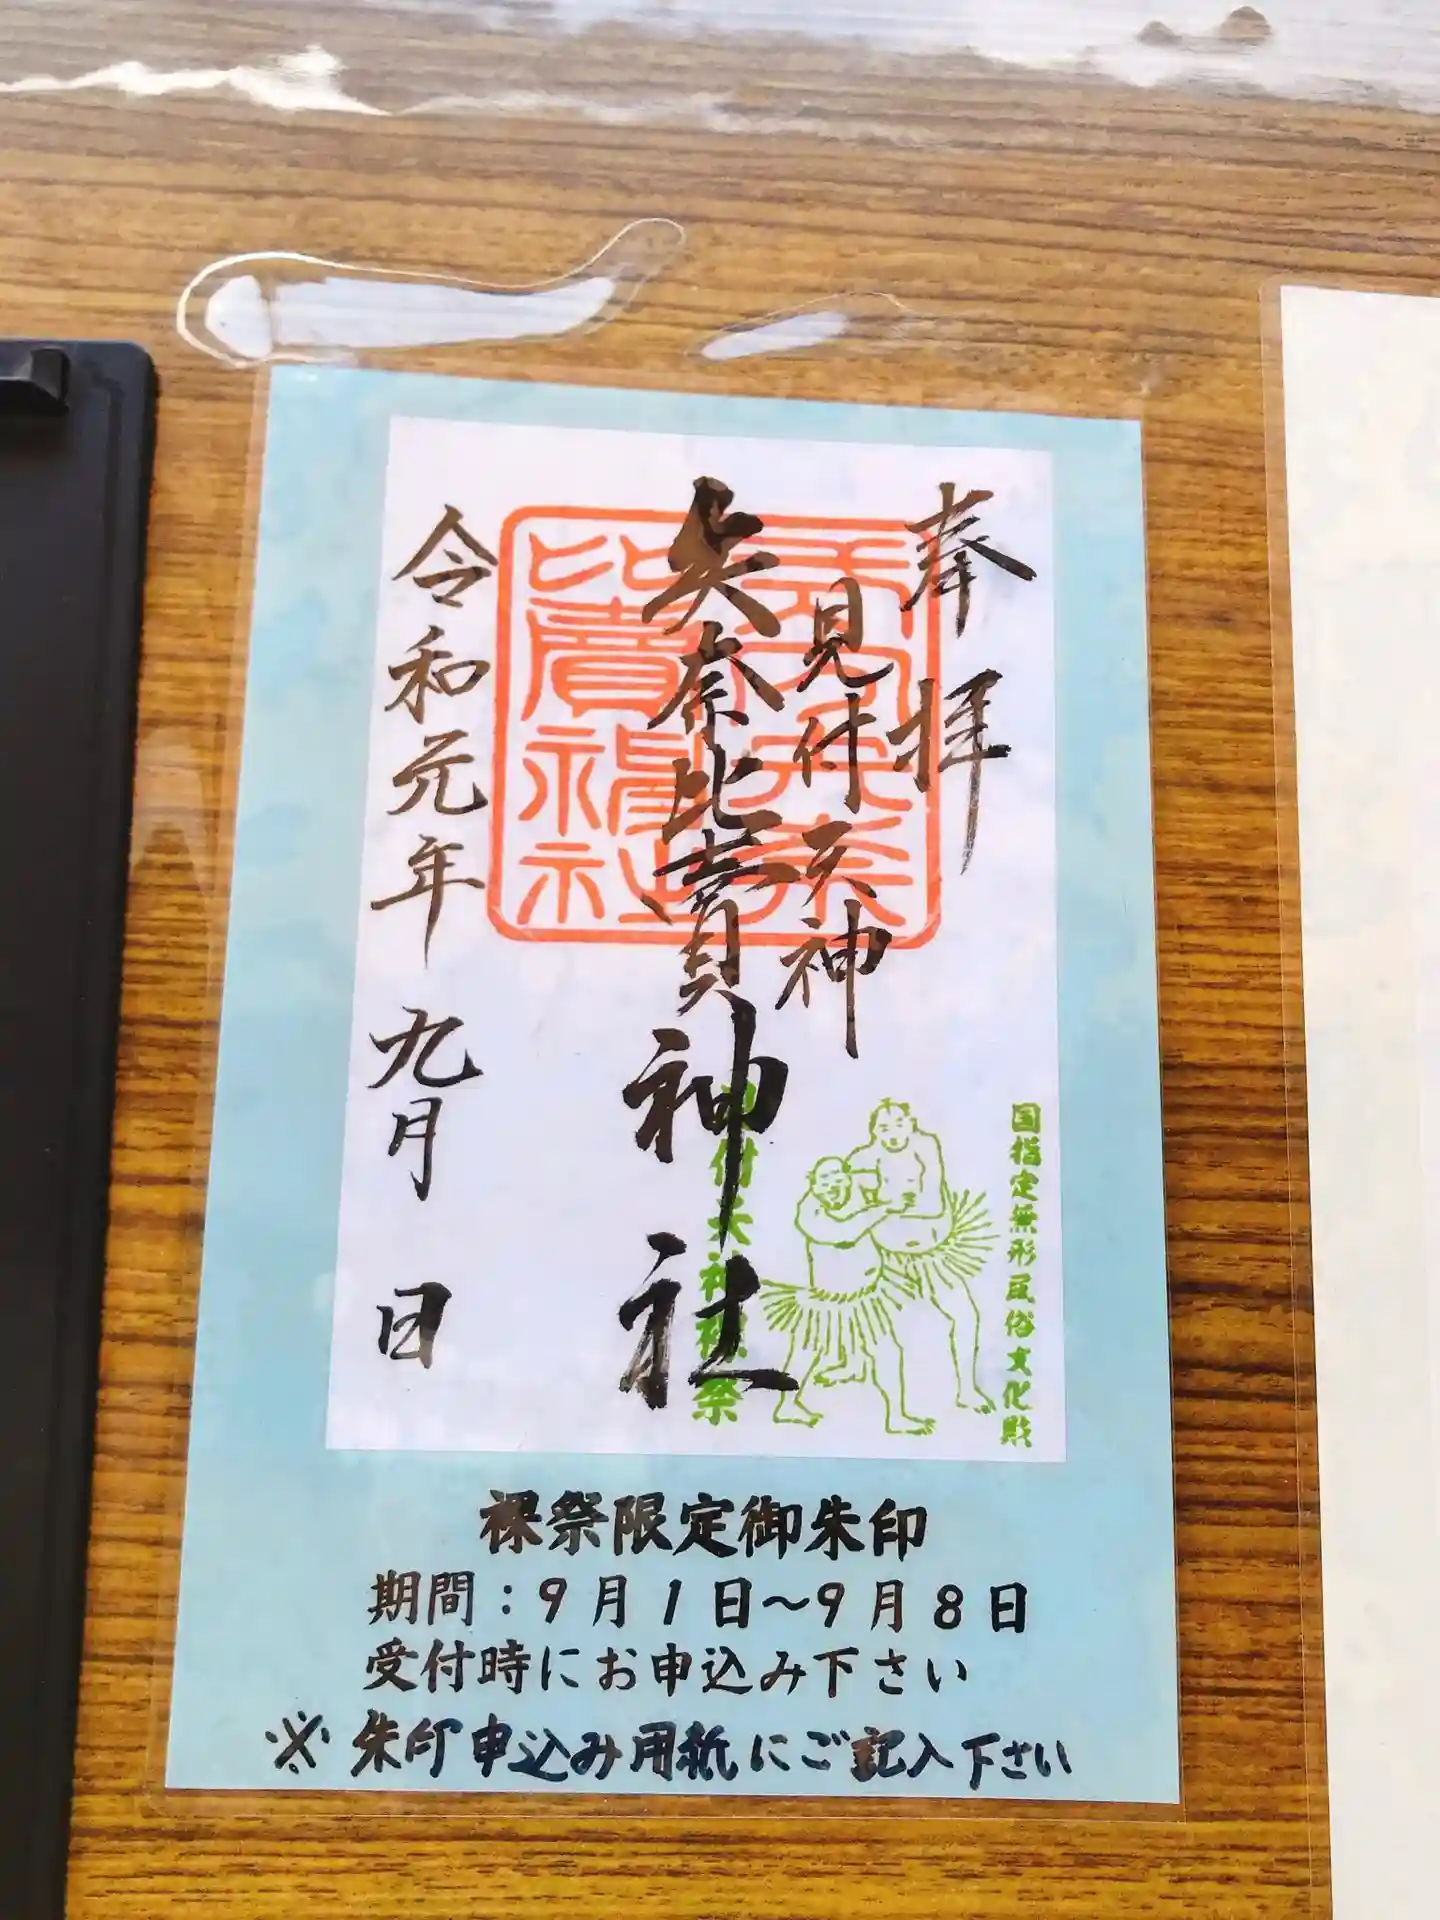 奉拝
見付天神
矢奈比賣神社
令和元年九月 日
国指定無形民俗文化財
見付天神裸祭
裸祭限定御朱印
期間：9月1日～9月8日
受付時にお申込み下さい
※朱印申込み用紙にご記入下さい